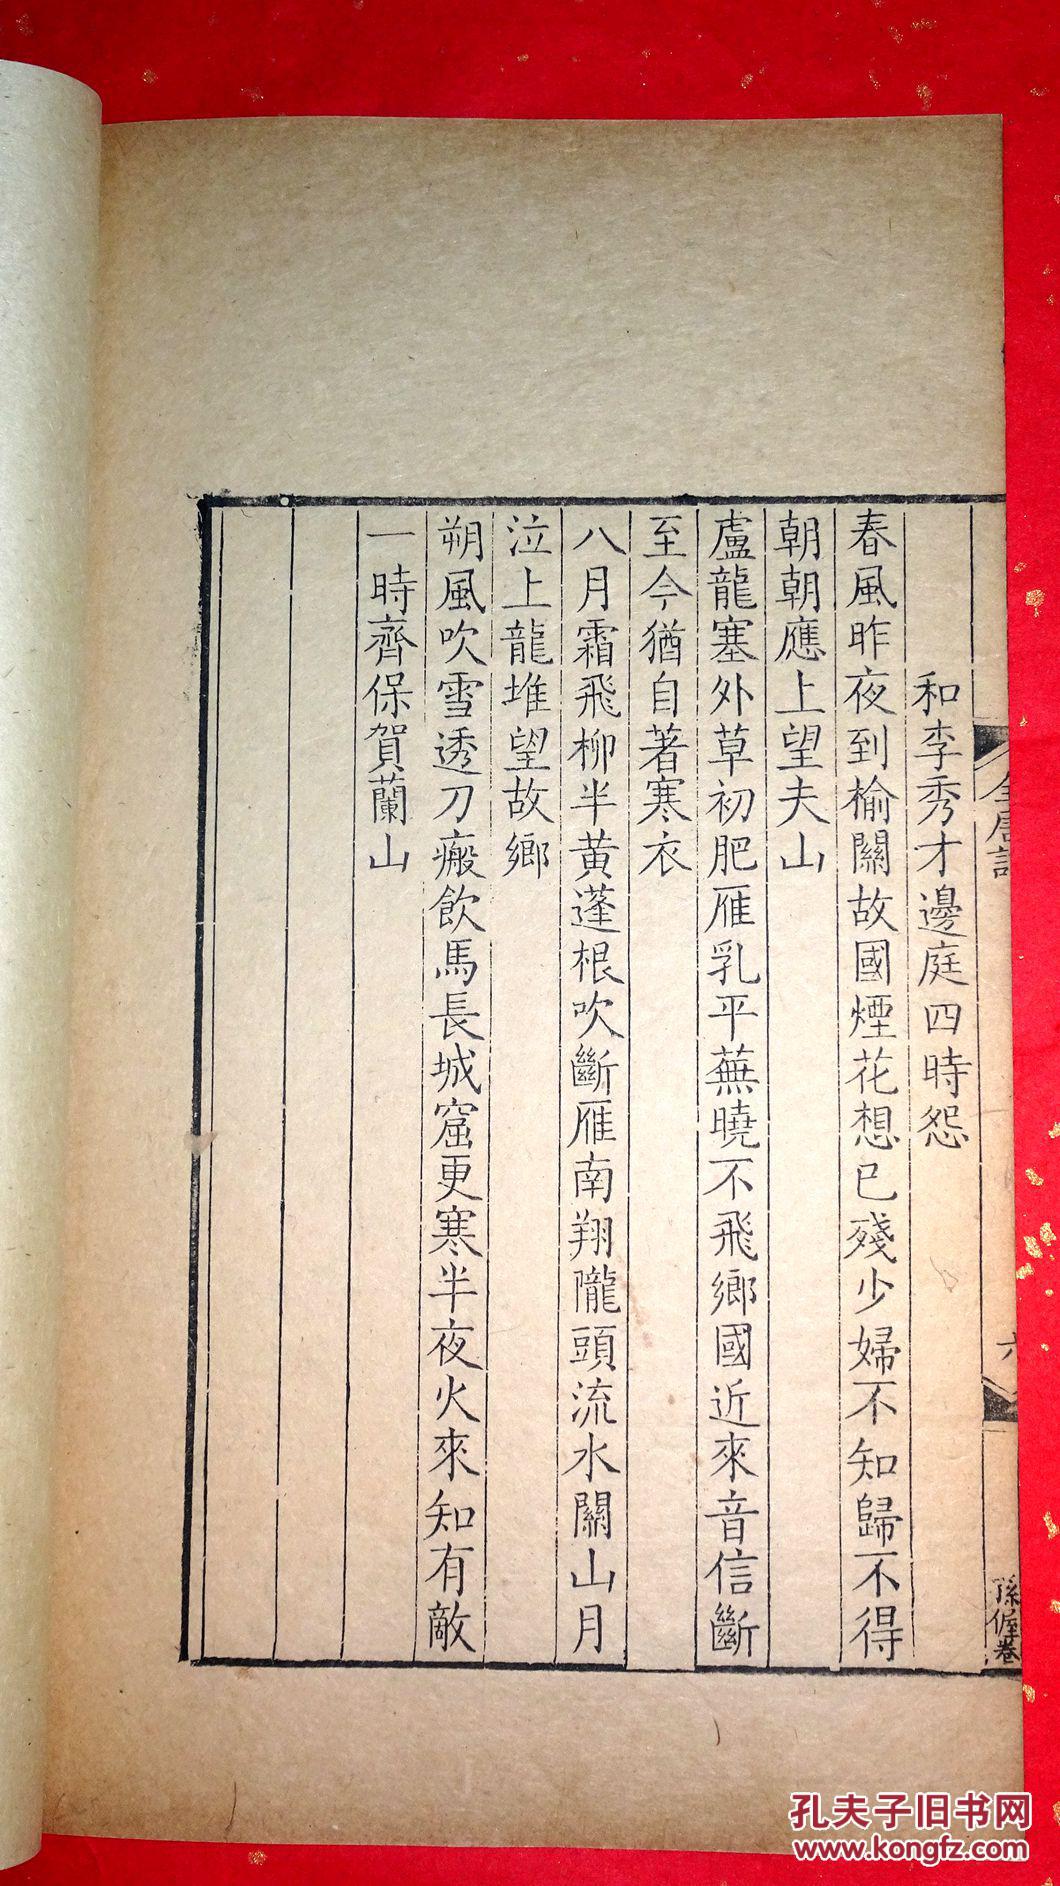 全唐詩
六
孫偓卷
和李秀才邊庭四時怨
春風昨夜到榆關故國煙花想已殘少婦不知歸不得
朝朝應上望夫山
盧龍塞外草初肥雁乳平蕪曉不飛鄉國近來音信斷
至今猶自著寒衣
八月霜飛柳半黃蓬根吹斷雁南翔隴頭流水關山月
泣上龍堆望故鄉
朔風吹雪透刀瘢飲馬長城窟更寒半夜火來知有敵
一時齊保賀蘭山
孔夫子旧书网
www.kongfz.com